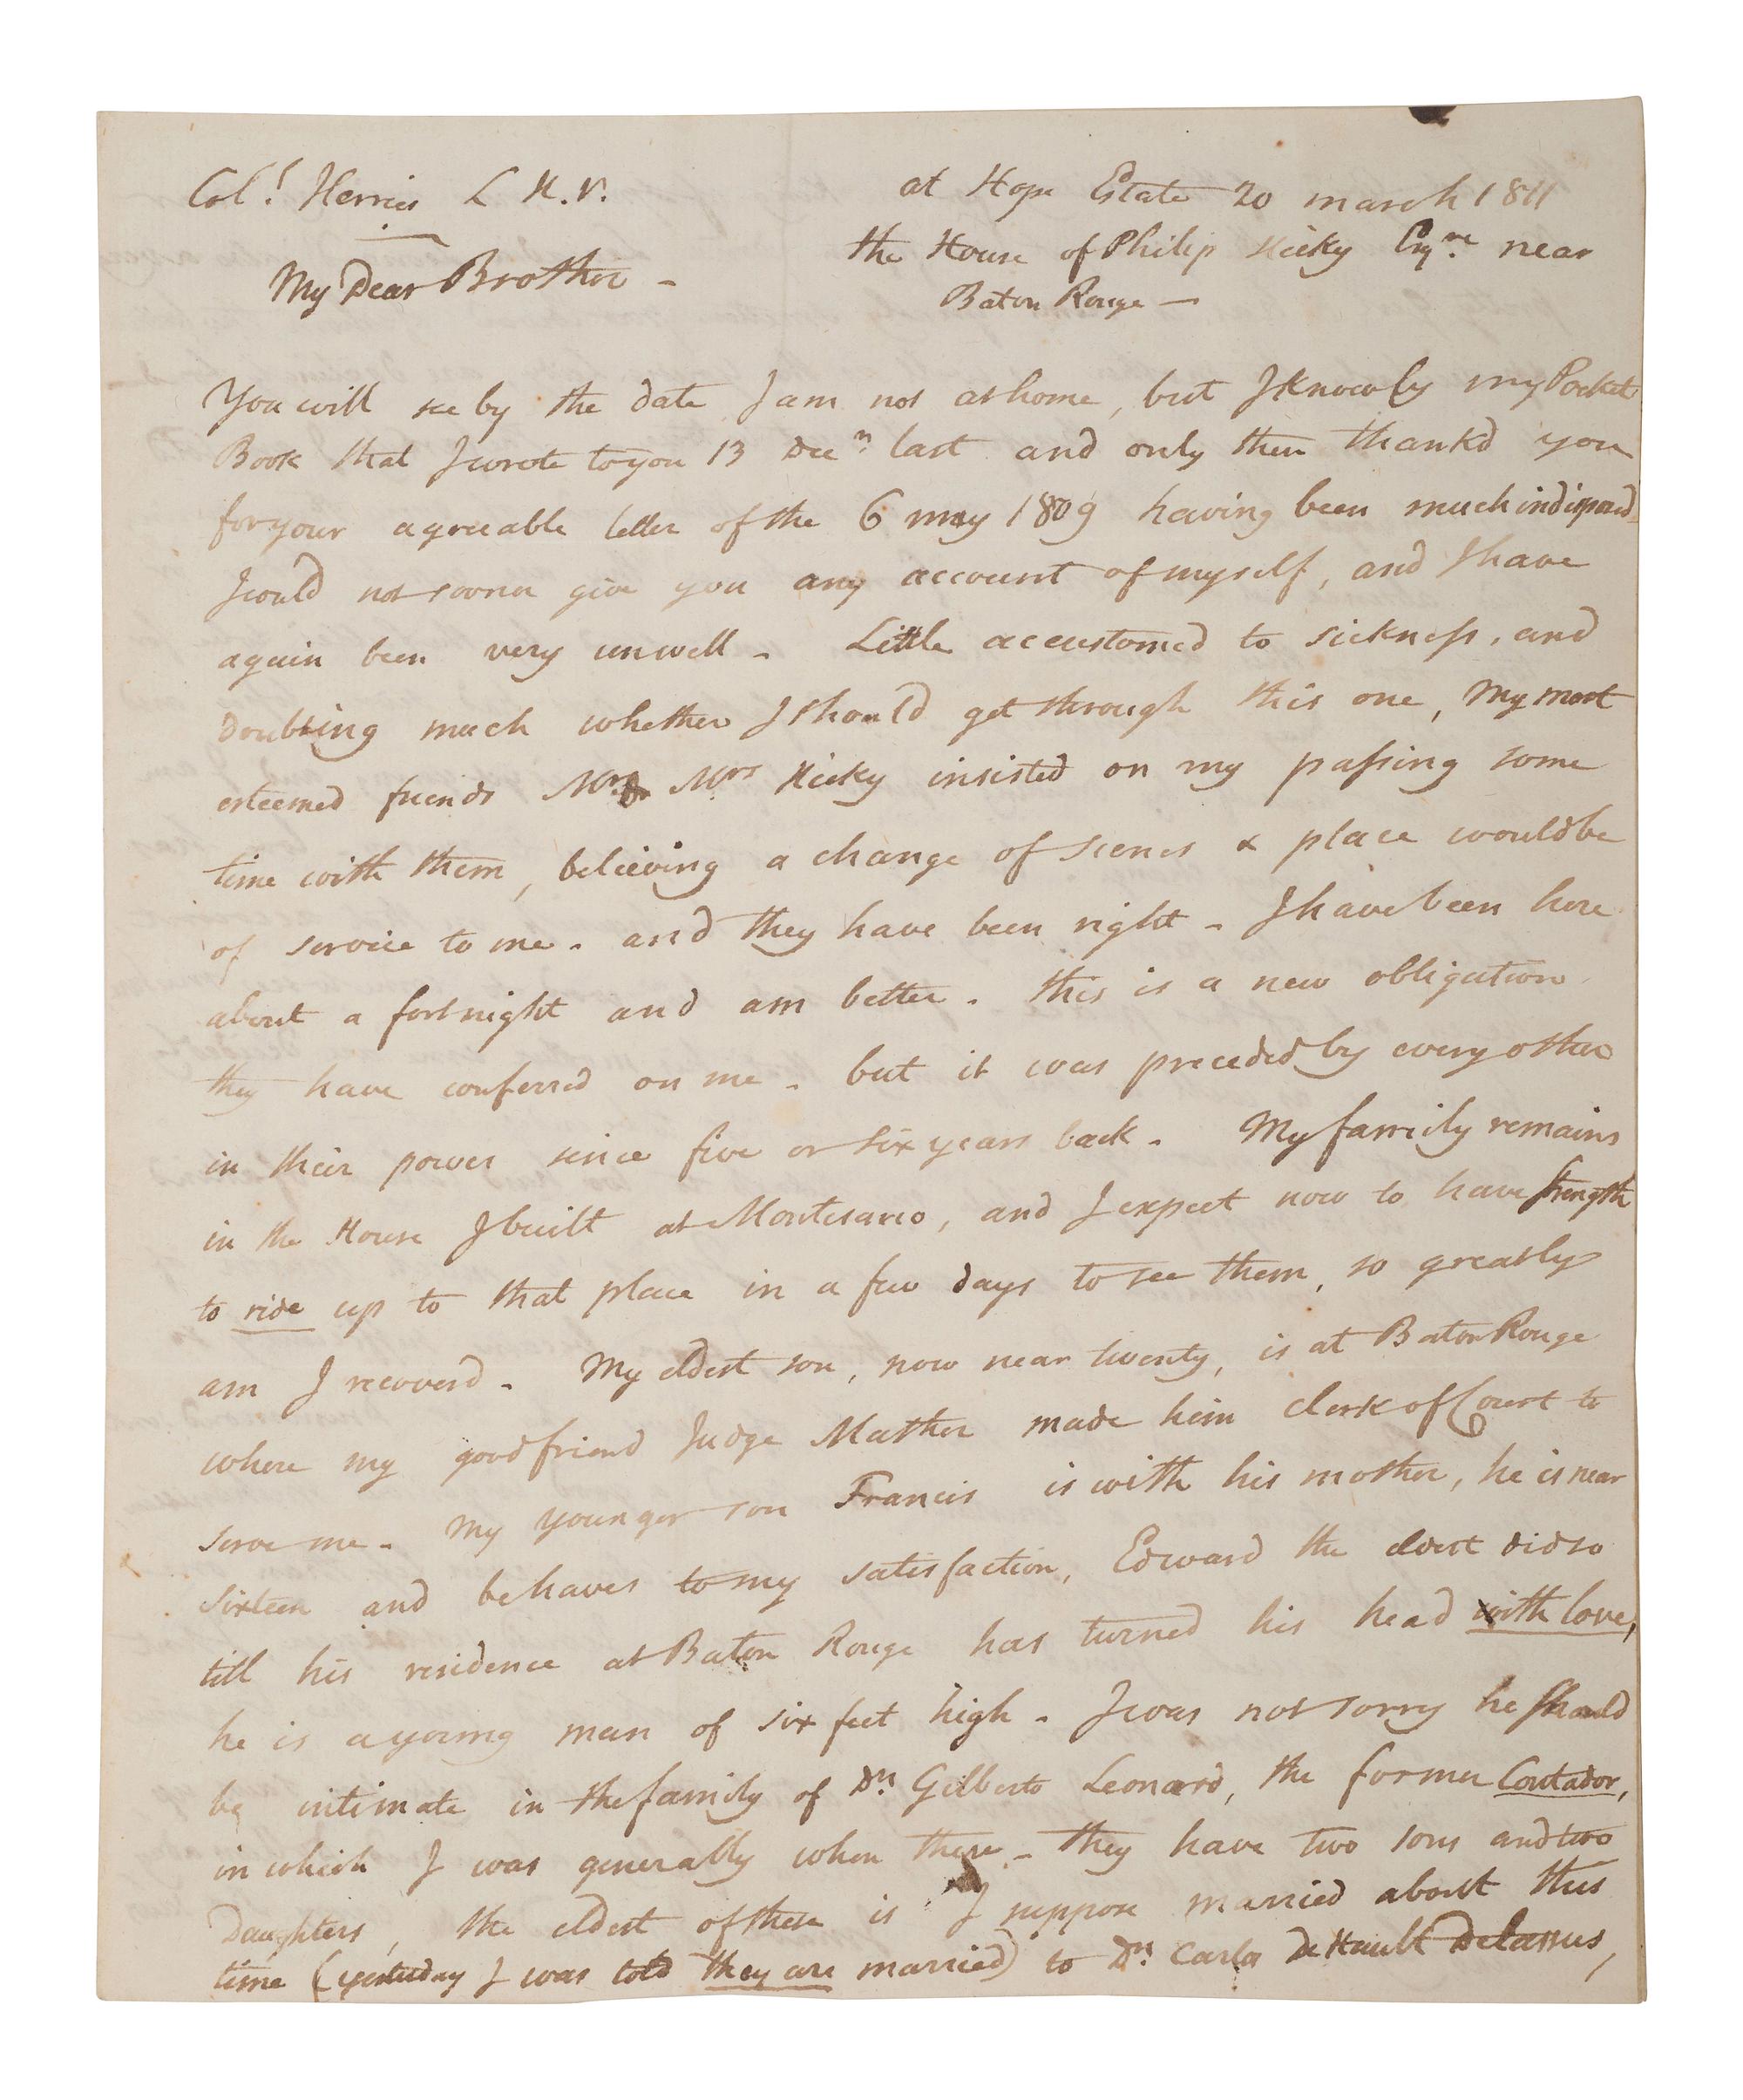 Col.l Herries L H.V.
at Hope Estate 20 march 1811
the House of Philip Hicky Esq.re near
Baton Rouge —
My Dear Brother —
You will see by the date I am not at home, but I know by my Pocket
Book that I wrote to you 13 Dec.m last and only then thank'd you
for your agreeable letter of the 6 may 1809 having been much indisposed
I could not sooner give you any account of myself, and I have
again been very unwell – Little accustomed to sickness, and
Doubting much whether I should get through this one, My most
esteemed friends Mr. & Mrs Hicky insisted on my passing some
time with them, believing a change of scenes & place would be
of service to me – and they have been right – I have been here
about a fortnight and am better – this is a new obligation
they have conferred on me – but it was preceded by every other
in their power since five or six years back – My family remains
in the House I built at Montesano, and I expect now to have strength
to ride up to that place in a few days to see them, so greatly
am I recover'd – My eldest son, now near twenty, is at Baton Rouge
where my good friend Judge Mather made him clerk of Court to
serve me – My younger son Francis is with his mother, he is near
sixteen and behaves to my satisfaction, Edward the eldest did so
till his residence at Baton Rouge has turned his head with love,
he is a young man of six feet high – I was not sorry he should
be intimate in the family of Dn. Gilberto Leonard, the former Contador,
in which I was generally when there – they have two sons and two
Daughters, the eldest of these is I suppose married about this
time (yesterday I was told they are married) to Dn. Carlos De Hault Delassus,